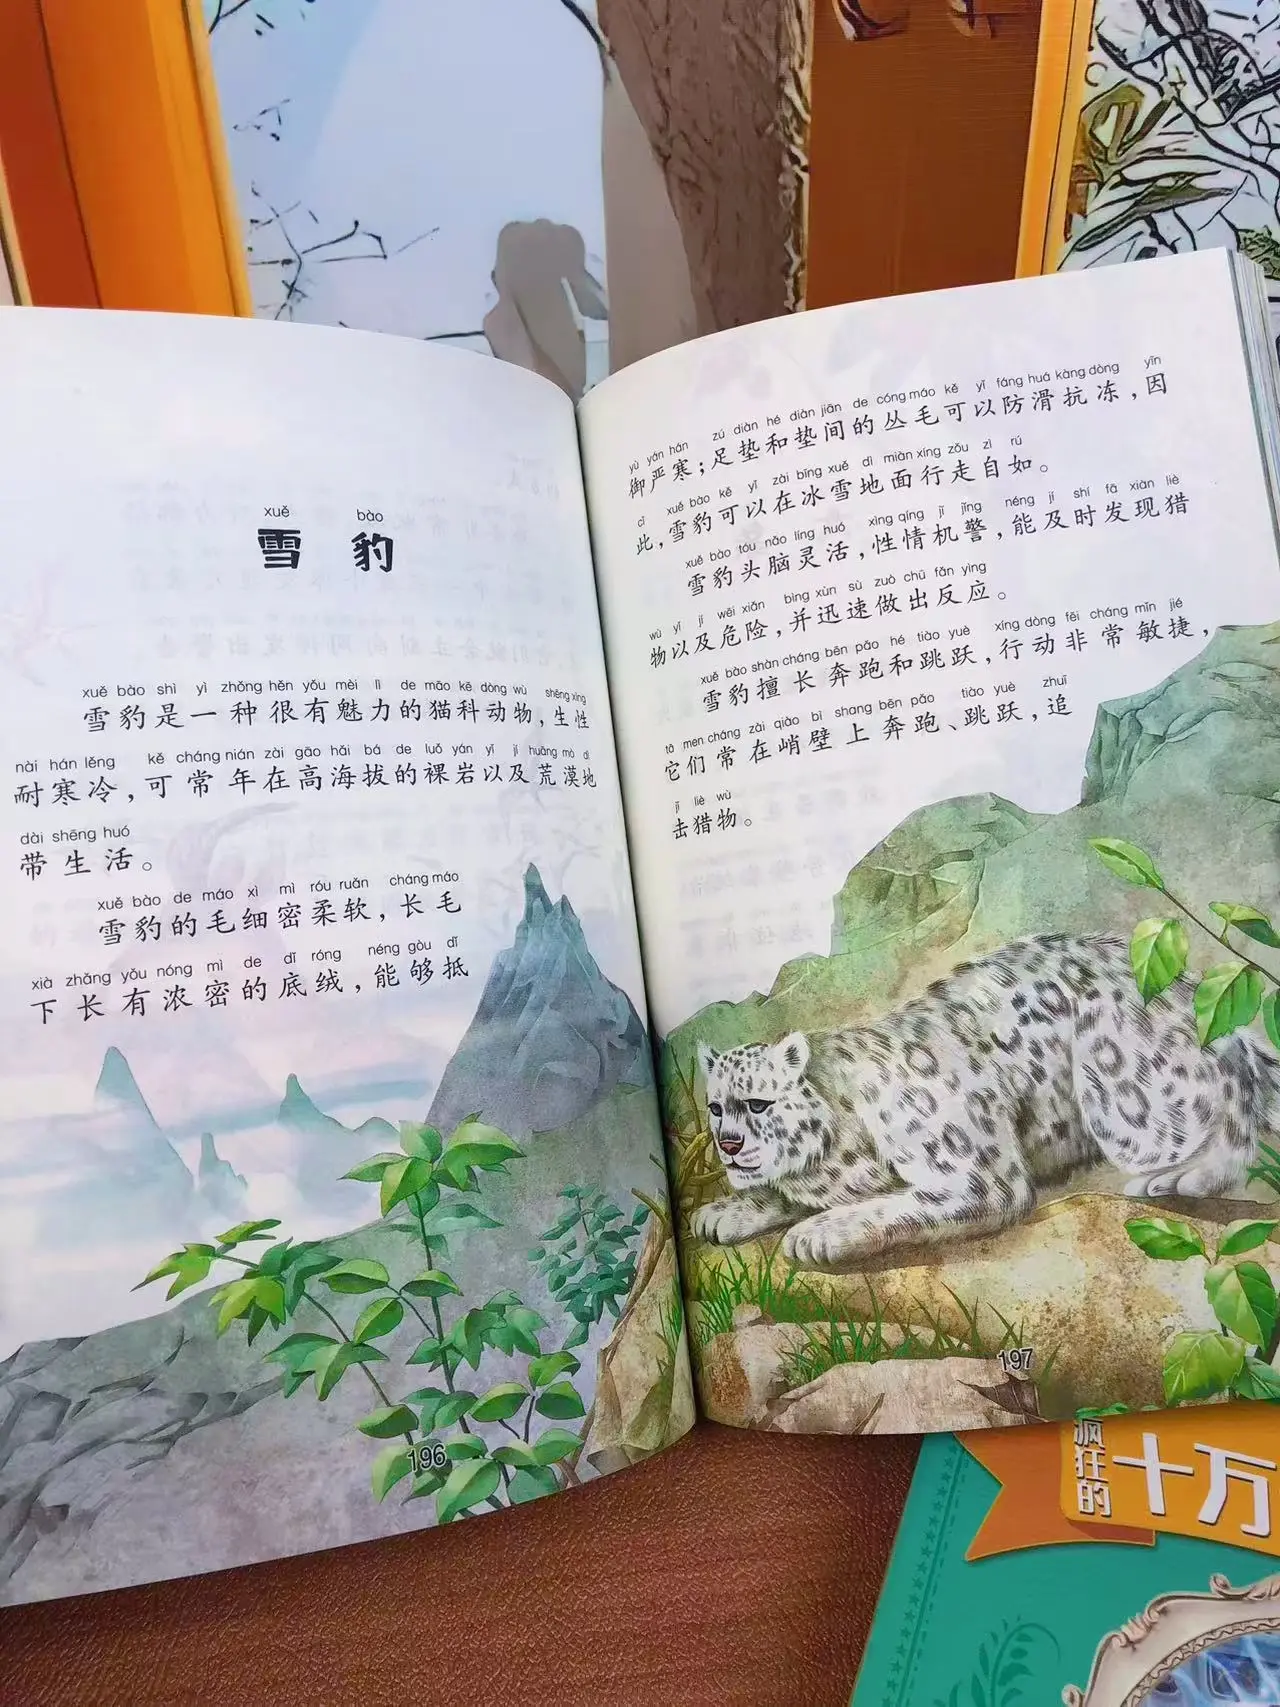 xuě bào
雪豹
xuě bào shì yì zhǒng hěn yǒu mèi lì de māo kē dòng wù shēng xìng
雪豹是一种很有魅力的猫科动物，生性
nài hán lěng kě cháng nián zài gāo hǎi bá de luǒ yán yǐ jí huāng mò dì
耐寒冷，可常年在高海拔的裸岩以及荒漠地
dài shēng huó
带生活。
xuě bào de máo xì mì róu ruǎn cháng máo
雪豹的毛细密柔软，长毛
xià zhǎng yǒu nóng mì de dǐ róng néng gòu dǐ
下长有浓密的底绒，能够抵
196
yù yán hán zú diàn hé diàn jiān de cóng máo kě yǐ fáng huá kàng dòng yīn
御严寒；足垫和垫间的丛毛可以防滑抗冻，因
cǐ xuě bào kě yǐ zài bīng xuě dì miàn xíng zǒu zì rú
此，雪豹可以在冰雪地面行走自如。
xuě bào tóu nǎo líng huó xìng qíng jī jǐng néng jí shí fā xiàn liè
雪豹头脑灵活，性情机警，能及时发现猎
wù yǐ jí wēi xiǎn bìng xùn sù zuò chū fǎn yìng
物以及危险，并迅速做出反应。
xuě bào shàn cháng bēn pǎo hé tiào yuè xíng dòng fēi cháng mǐn jié
雪豹擅长奔跑和跳跃，行动非常敏捷，
tā men cháng zài qiào bì shang bēn pǎo tiào yuè zhuī
它们常在峭壁上奔跑、跳跃，追
jī liè wù
击猎物。
197
疯狂的十万